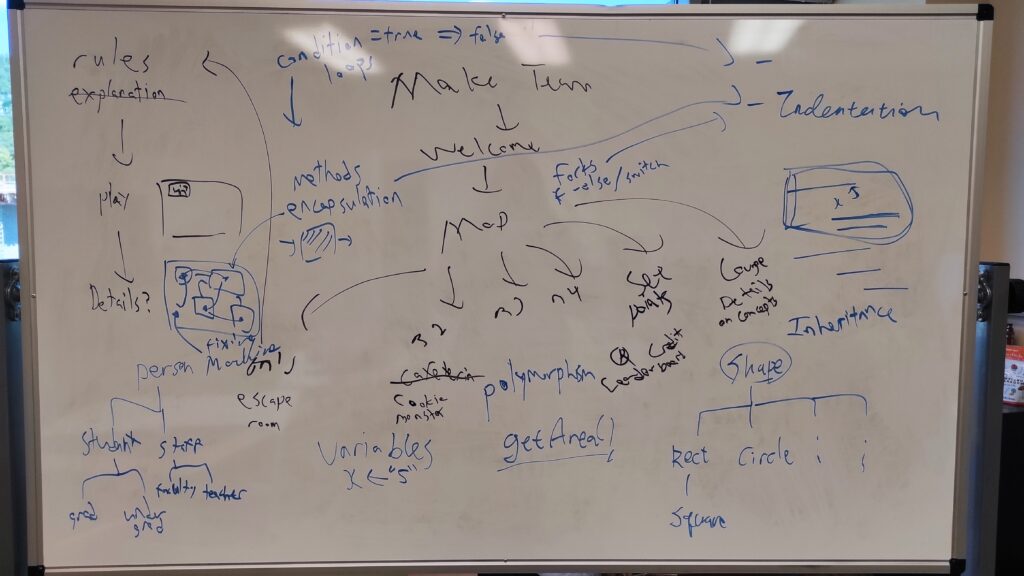 rules
explanation
play
Details?
condition = true => false
loops
Make Team
Welcome
Map
methods
encapsulation
Forks
if-else/switch
- Indentation
x 5
See
points
Credit
Leaderboard
Lounge
Details
on concepts
Inheritance
n2
n3
n4
Cookie
monster
escape
room
polymorphism
getArea()
variables
x ← "5"
fixing
Machine
person
student
staff
grad
under
grad
faculty
teacher
Shape
Rect
Circle
Square